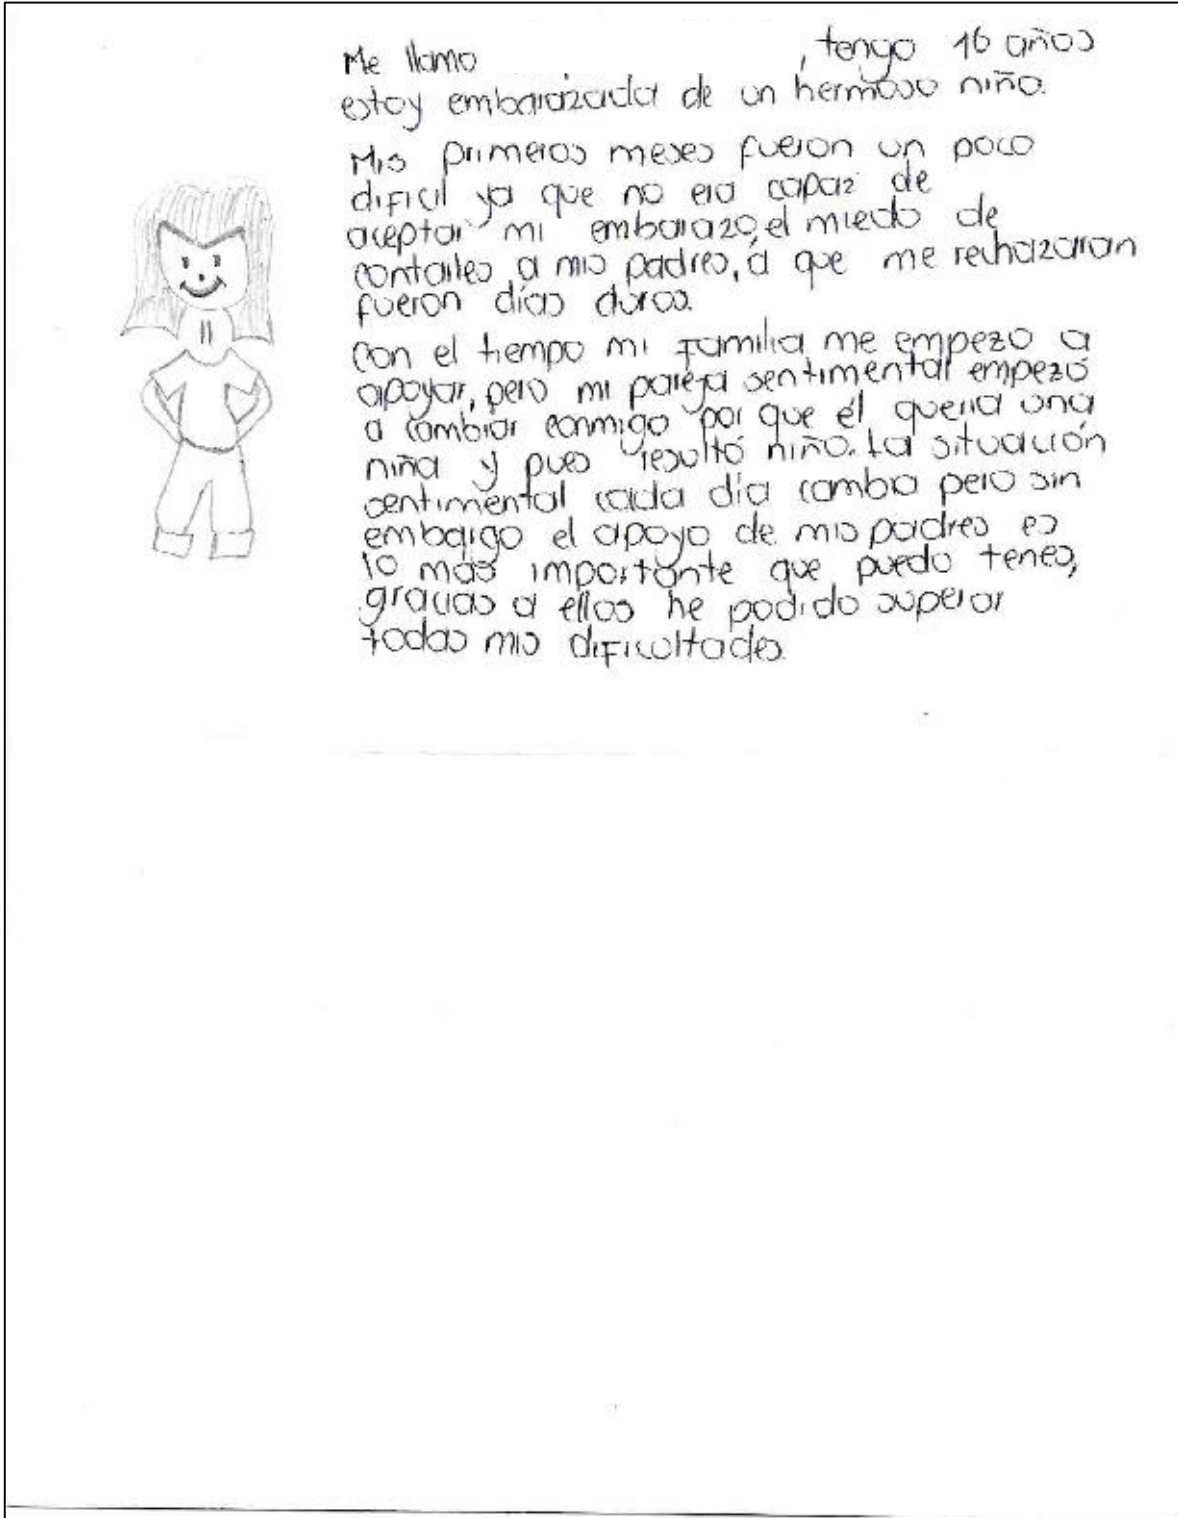 Me llamo , tengo 16 años
estoy embarazada de un hermoso niño.
Mis primeros meses fueron un poco
dificil ya que no era capaz de
aceptar mi embarazo, el miedo de
contarles a mis padres, a que me rechazaran
fueron días duros.
Con el tiempo mi familia me empezo a
apoyar, pero mi pareja sentimental empezó
a cambiar conmigo por que él queria una
niña y pues resultó niño. La situación
sentimental cada día cambia pero sin
embargo el apoyo de mis padres es
lo más importante que puedo tener,
gracias a ellos he podido superar
todas mis dificultades.